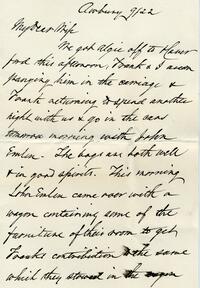 Awbury 9/22
My Dear Wife
We got algie off to Haver
ford this afternoon, Frank & I accom
panying him in the carriage &
Frank returning to spend another
night with us & go in the cars
tomorrow morning with John
Emlen. The boys are both well
& in good spirits. This morning
John Emlen came over with a
wagon containing some of the
furniture of their room to get
Franks contribution to the same
which they stowed in the wagon